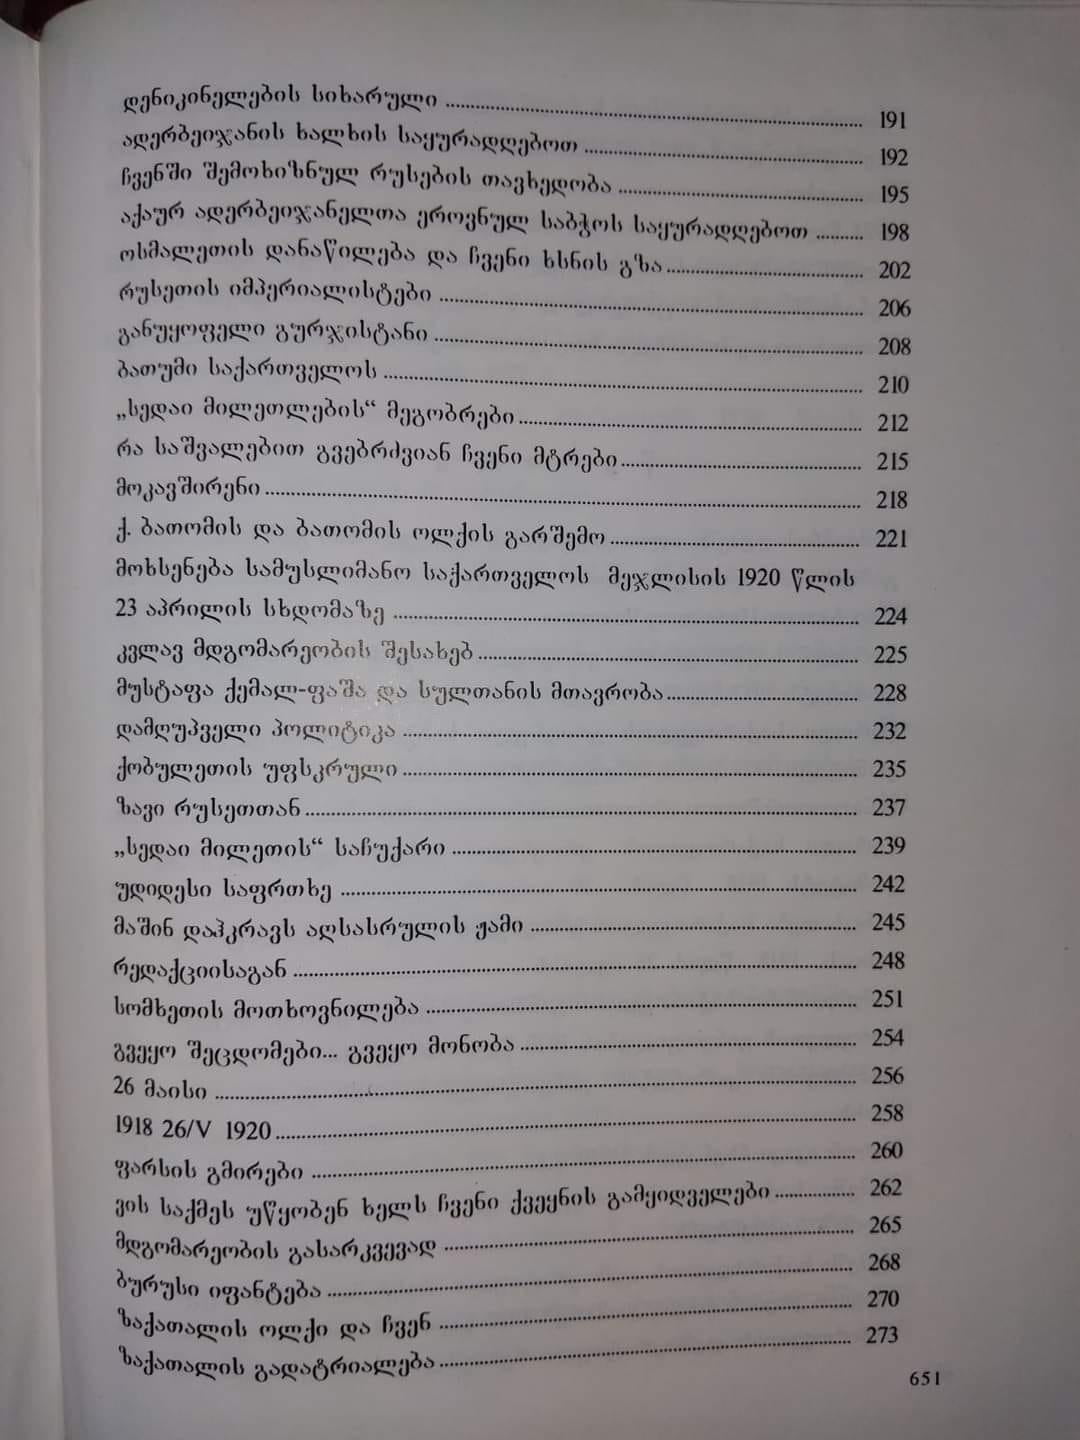 დენიკინელების სიხარული ........ 191
ადერბეიჯანის ხალხის საყურადღებოთ ........ 192
ჩვენში შემოხიზნულ რუსების თავხედობა ........ 195
აქაურ ადერბეიჯანელთა ეროვნულ საბჭოს საყურადღებოთ ........ 198
ოსმალეთის დანაწილება და ჩვენი ხსნის გზა ........ 202
რუსეთის იმპერიალისტები ........ 206
განუყოფელი გურჯისტანი ........ 208
ბათუმი საქართველოს ........ 210
„სედაი მილეთლების“ მეგობრები ........ 212
რა საშვალებით გვებრძვიან ჩვენი მტრები ........ 215
მოკავშირენი ........ 218
ქ. ბათომის და ბათომის ოლქის გარშემო ........ 221
მოხსენება სამუსლიმანო საქართველოს მეჯლისის 1920 წლის
23 აპრილის სხდომაზე ........ 224
კვლავ მდგომარეობის შესახებ ........ 225
მუსტაფა ქემალ-ფაშა და სულთანის მთავრობა ........ 228
დამღუპველი პოლიტიკა ........ 232
ქობულეთის უფსკრული ........ 235
ზავი რუსეთთან ........ 237
„სედაი მილეთის“ საჩუქარი ........ 239
უდიდესი საფრთხე ........ 242
მაშინ დაჰკრავს აღსასრულის ჟამი ........ 245
რედაქციისაგან ........ 248
სომხეთის მოთხოვნილება ........ 251
გვეყო შეცდომები... გვეყო მონობა ........ 254
26 მაისი ........ 256
1918 26/V 1920 ........ 258
ფარსის გმირები ........ 260
ვის საქმეს უწყობენ ხელს ჩვენი ქვეყნის გამყიდველები ........ 262
მდგომარეობის გასარკვევად ........ 265
ბურუსი იფანტება ........ 268
ზაქათალის ოლქი და ჩვენ ........ 270
ზაქათალის გადატრიალება ........ 273
651